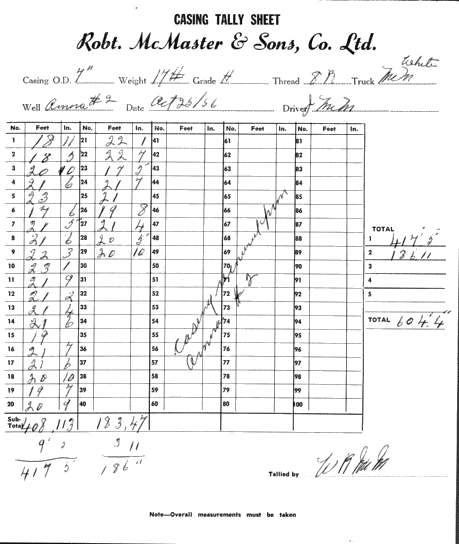 CASING TALLY SHEET
Robt. McMaster & Sons, Co. Ltd.
Casing O.D. 7" Weight 17# Grade H Thread 8 R Truck McM
Well #2 Date Oct 25/56 Driver J McM
No. Feet In. No. Feet In. No. Feet In. No. Feet In. No. Feet In.
1 18 11 21 22 1 41 61 81
2 18 5 22 22 7 42 62 82
3 20 10 23 17 5 43 63 83
4 21 6 24 21 7 44 64 84
5 23 25 21 45 65 85
6 17 6 26 19 8 46 66 86
7 21 5 27 21 4 47 67 87
8 21 6 28 20 5 48 68 88
9 22 3 29 20 10 49 69 89
10 23 1 30 50 70 90
11 21 9 31 51 71 91
12 21 2 32 52 72 92
13 21 4 33 53 73 93
14 21 6 34 54 74 94
15 19 35 55 75 95
16 21 7 36 56 76 96
17 21 6 37 57 77 97
18 20 10 38 58 78 98
19 19 7 39 59 79 99
20 20 9 40 60 80 100
Sub-Total 408 113 183, 47
9' 5 3 11
417 5' 186 11
Casing
#2
TOTAL
1 417' 5"
2 186 11
3
4
5
TOTAL 604' 4"
Tallied by
Note—Overall measurements must be taken